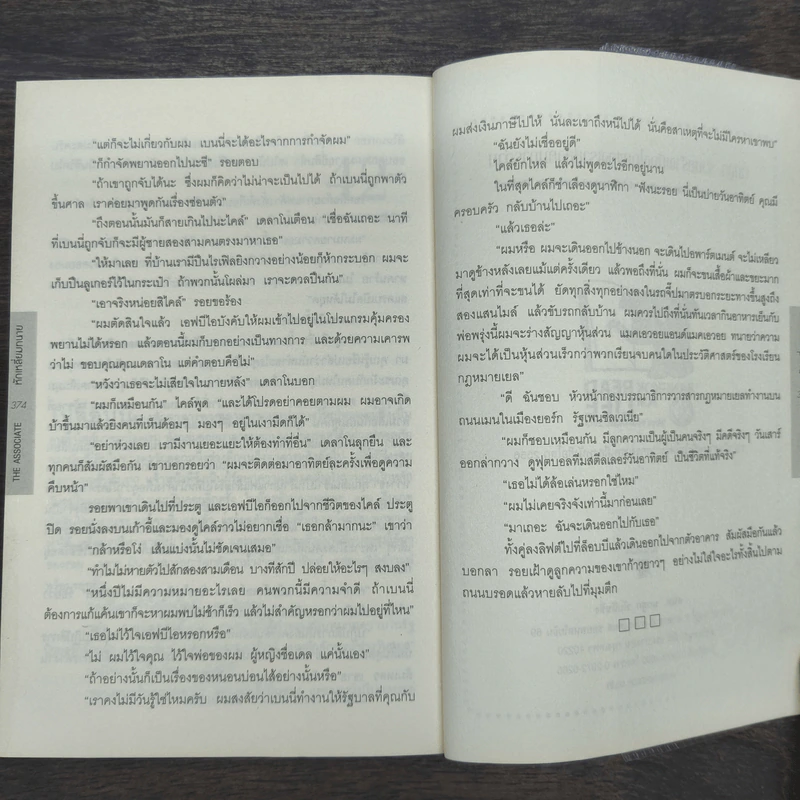 "แต่ก็จะไม่เกี่ยวกับผม เบนนี่จะได้อะไรจากการกำจัดผม"
"ก็กำจัดพยานออกไปนะซี" รอยตอบ
"ถ้าเขาถูกจับได้นะ ซึ่งผมก็คิดว่าไม่น่าจะเป็นไปได้ ถ้าเบนนี่ถูกพาตัว
ขึ้นศาล เราค่อยมาพูดกันเรื่องซ่อนตัว"
"ถึงตอนนั้นมันก็สายเกินไปนะไคล์" เดลาโนเตือน "เชื่อฉันเถอะ นาที
ที่เบนนี่ถูกจับก็จะมีผู้ชายสองสามคนตรงมาหาเธอ"
"ให้มาเลย ที่บ้านเรามีปืนไรเฟิลยิงกวางอย่างน้อยก็ห้ากระบอก ผมจะ
เก็บปืนลูเกอร์ไว้ในกระเป๋า ถ้าพวกนั้นโผล่มา เราจะดวลปืนกัน"
"เอาจริงหน่อยสิไคล์" รอยขอร้อง
"ผมตัดสินใจแล้ว เอฟบีไอบังคับให้ผมเข้าไปอยู่ในโปรแกรมคุ้มครอง
พยานไม่ได้หรอก แล้วตอนนี้ผมก็บอกอย่างเป็นทางการ และด้วยความเคารพ
ว่าไม่ ขอบคุณคุณเดลาโน แต่คำตอบคือไม่"
"หวังว่าเธอจะไม่เสียใจในภายหลัง" เดลาโนบอก
"ผมก็เหมือนกัน" ไคล์พูด "และได้โปรดอย่าคอยตามผม ผมอาจเกิด
บ้าขึ้นมาแล้วยิงคนที่เห็นด้อมๆ มองๆ อยู่ในเงามืดก็ได้"
"อย่าห่วงเลย เรามีงานเยอะแยะให้ต้องทำที่อื่น" เดลาโนลุกยืน และ
ทุกคนก็สัมผัสมือกัน เขาบอกรอยว่า "ผมจะติดต่อมาอาทิตย์ละครั้งเพื่อดูความ
คืบหน้า"
รอยพาเขาเดินไปที่ประตู และเอฟบีไอก็ออกไปจากชีวิตของไคล์ ประตู
ปิด รอยนั่งลงบนเก้าอี้และมองดูไคล์ราวไม่อยากเชื่อ "เธอกล้ามากนะ" เขาว่า
"กล้าหรือโง่ เส้นแบ่งนั้นไม่ชัดเจนเสมอ"
"ทำไมไม่หายตัวไปสักสองสามเดือน บางทีสักปี ปล่อยให้อะไรๆ สงบลง"
"หนึ่งปีไม่มีความหมายอะไรเลย คนพวกนี้มีความจำดี ถ้าเบนนี่
ต้องการแก้แค้นเขาก็จะหาผมพบไม่ช้าก็เร็ว แล้วไม่สำคัญหรอกว่าผมไปอยู่ที่ไหน"
"เธอไม่ไว้ใจเอฟบีไอหรอกหรือ"
"ไม่ ผมไว้ใจคุณ ไว้ใจพ่อของผม ผู้หญิงชื่อเดล แค่นั้นเอง"
"ถ้าอย่างนั้นก็เป็นเรื่องของหนอนบ่อนไส้อย่างนั้นหรือ"
"เราคงไม่มีวันรู้ใช่ไหมครับ ผมสงสัยว่าเบนนี่ทำงานให้รัฐบาลที่คุณกับ
THE ASSOCIATE 374 หักเหลี่ยมทนาย
ผมส่งเงินภาษีไปให้ นั่นละเขาถึงหนีไปได้ นั่นคือสาเหตุที่จะไม่มีใครหาเขาพบ"
"ฉันยังไม่เชื่ออยู่ดี"
ไคล์ยักไหล่ แล้วไม่พูดอะไรอีกอยู่นาน
ในที่สุดไคล์ก็ชำเลืองดูนาฬิกา "ฟังนะรอย นี่เป็นบ่ายวันอาทิตย์ คุณมี
ครอบครัว กลับบ้านไปเถอะ"
"แล้วเธอล่ะ"
"ผมหรือ ผมจะเดินออกไปข้างนอก จะเดินไปอพาร์ตเมนต์ จะไม่เหลียว
มาดูข้างหลังเลยแม้แต่ครั้งเดียว แล้วพอถึงที่นั่น ผมก็จะขนเสื้อผ้าและขยะมาก
ที่สุดเท่าที่จะขนได้ ยัดทุกสิ่งทุกอย่างลงในรถจี๊ปมาตรบอกระยะทางขึ้นสูงถึง
สองแสนไมล์ แล้วขับรถกลับบ้าน ผมควรไปถึงที่นั่นทันเวลากินอาหารเย็นกับ
พ่อพรุ่งนี้ผมจะร่างสัญญาหุ้นส่วน แมคเอวอยแอนด์แมคเอวอย ทนายว่าความ
ผมจะได้เป็นหุ้นส่วนเร็วกว่าพวกเรียนจบคนใดในประวัติศาสตร์ของโรงเรียน
กฎหมายเยล"
"ดี ฉันชอบ หัวหน้ากองบรรณาธิการวารสารกฎหมายเยลทำงานบน
ถนนเมนในเมืองยอร์ก รัฐเพนซิลเวเนีย"
"ผมก็ชอบเหมือนกัน มีลูกความเป็นผู้เป็นคนจริงๆ มีคดีจริงๆ วันเสาร์
ออกล่ากวาง ดูฟุตบอลทีมสตีลเลอร์วันอาทิตย์ เป็นชีวิตที่แท้จริง"
"เธอไม่ได้ล้อเล่นหรอกใช่ไหม"
"ผมไม่เคยจริงจังเท่านี้มาก่อนเลย"
"มาเถอะ ฉันจะเดินออกไปกับเธอ"
ทั้งคู่ลงลิฟต์ไปที่ล็อบบี้แล้วเดินออกไปจากตัวอาคาร สัมผัสมือกันแล้ว
บอกลา รอยเฝ้าดูลูกความของเขาก้าวยาวๆ อย่างไม่ใส่ใจอะไรทั้งสิ้นไปตาม
ถนนบรอดแล้วหายลับไปที่มุมตึก